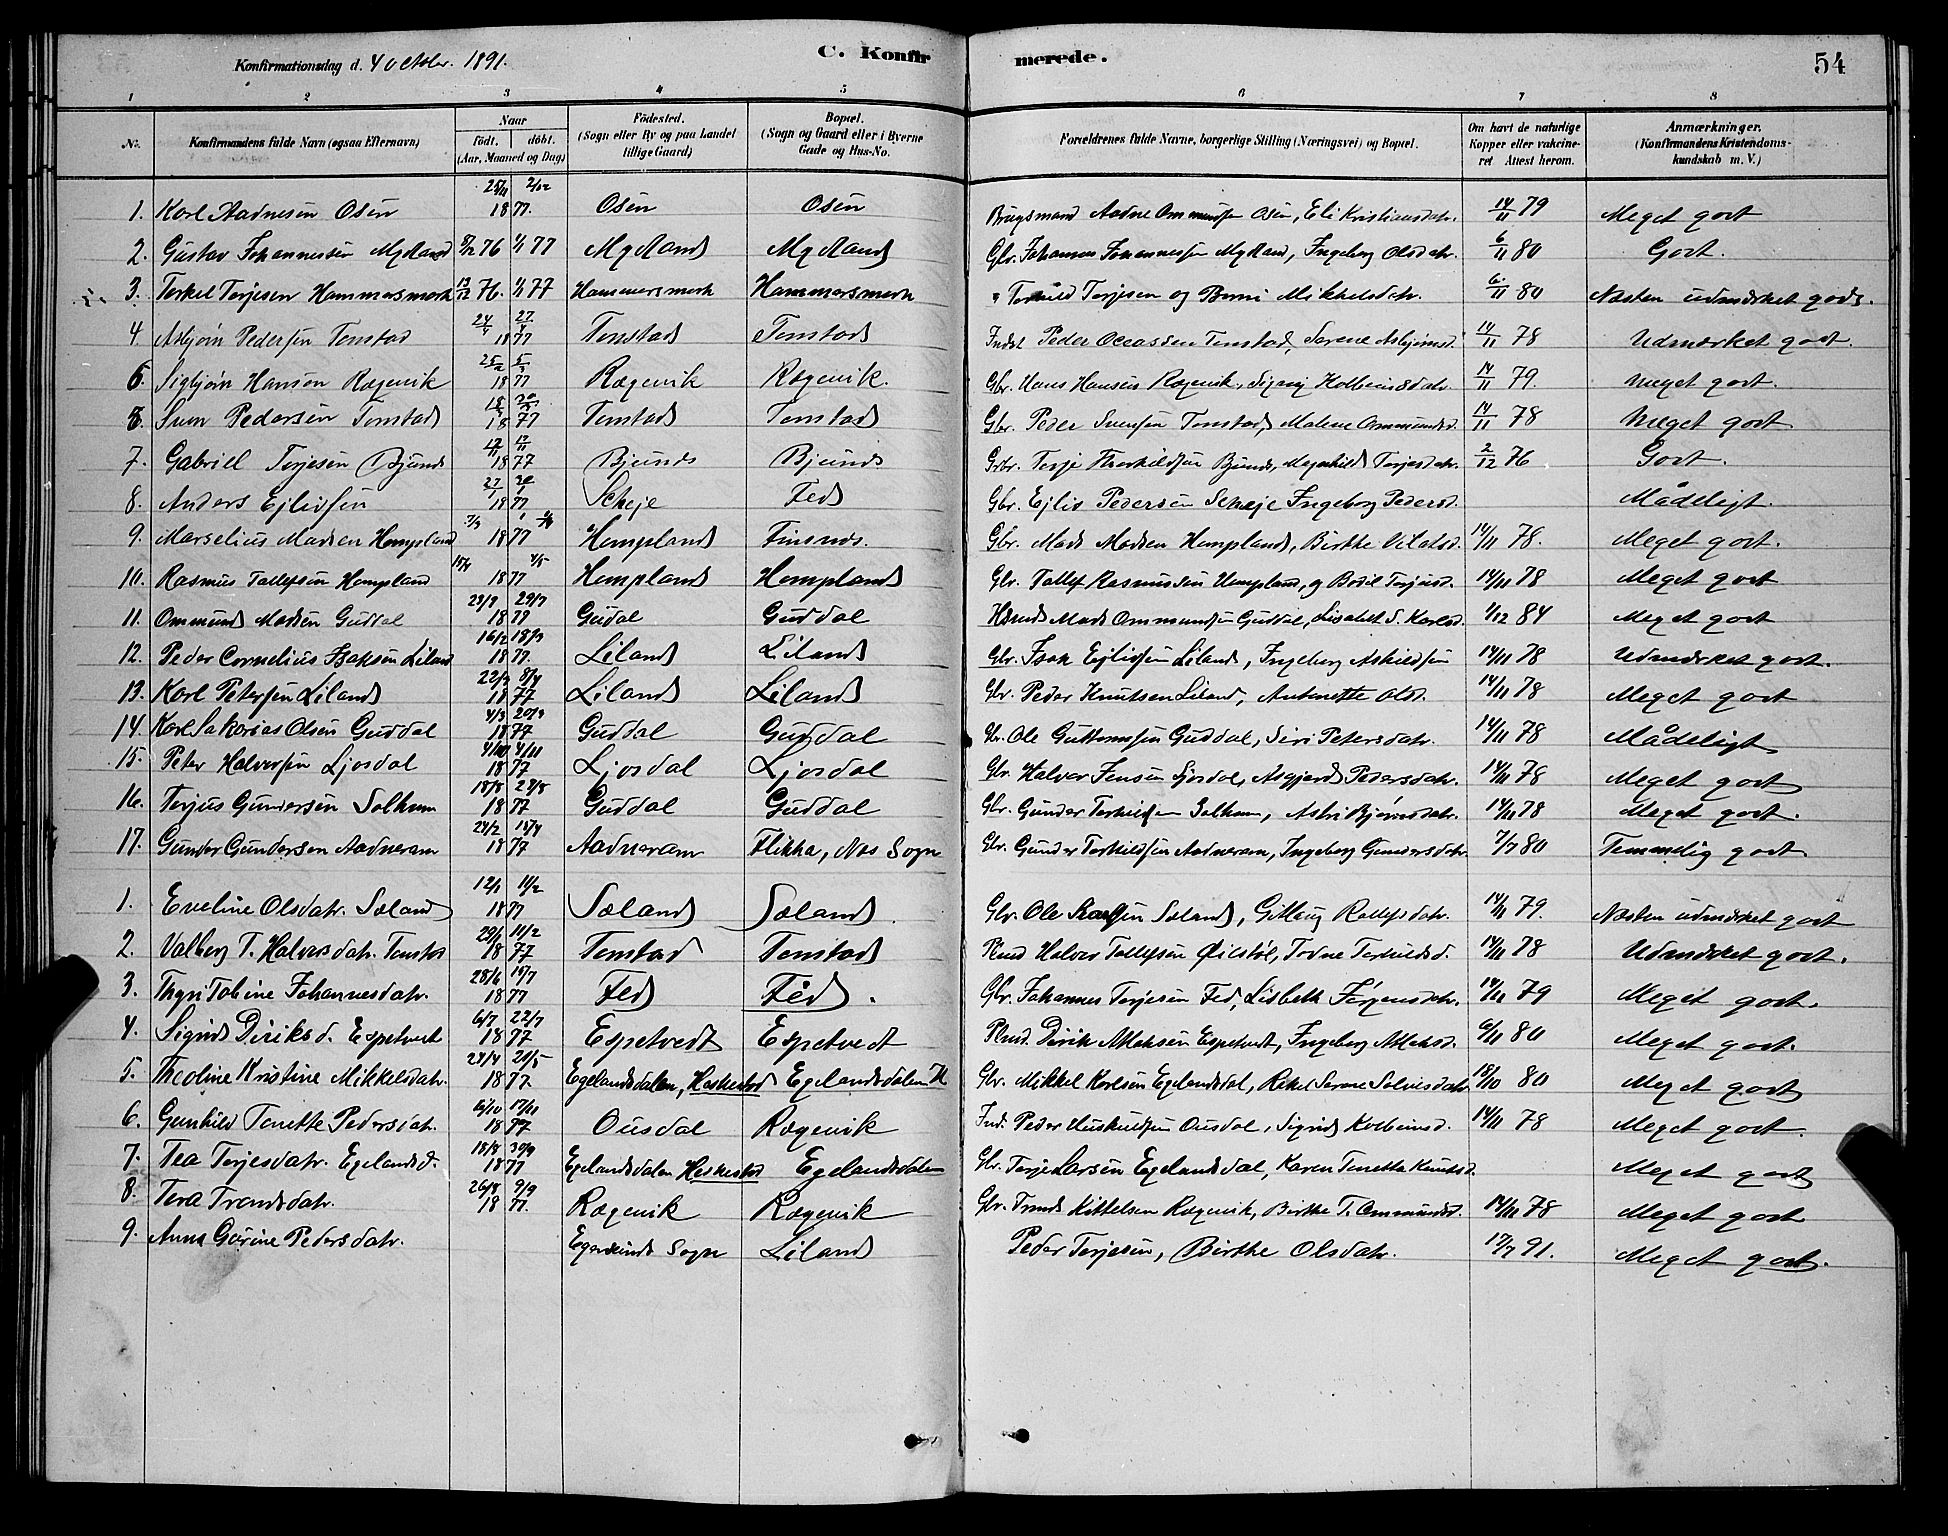 Konfirmationsdag d. 4 October. 1891.
C. Konfirmerede.
54
1 2 3 4 5 6 7 8
No. Konfirmandens fulde Navn (ogsaa Efternavn) Naar födt. döbt. (Aar, Maaned og Dag) Födested. (Sogn eller By og paa Landet tillige Gaard) Bopæl. (Sogn og Gaard eller i Byerne Gade og Hus-No. Forældrenes fulde Navne, borgerlige Stilling (Næringsvei) og Bopæl. Om havt de naturlige Kopper eller vakcineret. Attest herom. Anmærkninger. (Konfirmandens Kristendomskundskab m. V.)
1. Karl Aadnesen Osen 25/11 2/12 1877. Osen Osen Brugsmand Aadne Ommundsen Osen, Eli Kristiansdatr. 14/11 79 Meget godt
2. Gustav Johannessen Mydland 76 1/1 77 Mydland Mydland Gbr. Johannes Johannessen Mydland, Ingeborg Olsdatr. 6/11 80 Godt.
3. Torkel Terjesen Hammersmark 13/12 76. 1/1 77 Hammersmark Hammersmark " Terjesen og Mikkelsdatr. 6/11 80 Næsten udmærket godt.
4 Asbjørn Pedersen Tonstad 27/4 1877 Tonstad Tonstad Peder Tonstad, Serene Asbjørnsd. 14/11 78 Udmærket godt.
5. Sigbjørn Hansen Rægevik 1877 Rægevik Rægevik. Gbr. Hans Hansen Rægevik, Kolbeinsdatr. 14/11 79. Meget godt.
6. Sven Pedersen Tonstad 1877 Tonstad Tonstad Gbr. Peder Svensen Tonstad, Malene Ommundsd. 14/11 78 Meget godt
7. Gabriel Terjesen Bjunes 1877 Bjunes Bjunes Gbr. Terje Bjunes, Terjesdatr. 2/12 76 Godt.
8. Anders Ejlivsen 1877 Skeje Fed Gbr. Ejliv Pedersen Skeje Ingeborg Pedersd. Mådeligt.
9. Marselius Madsen Hompland 1877 Hompland Finsnes. Gbr. Mads Madsen Hompland, Birthe 14/11 78. Meget godt.
10. Rasmus Tallefsen Hompland 1877 Hompland Hompland Gbr. Tallef Rasmussen Hompland, og Bodil 14/11 78 Meget godt
11. Ommund Madsen Guddal 29/7 1877 Gudal Guddal Mads Ommundsen Guddal, Lisabet S. Karlsd. 1/12 84 Meget godt
12. Peder Cornelius Isaksen Liland 16/2 18/3 1877. Liland Liland Gbr. Isak Ejlivsen Liland, Ingeborg 14/11 78 Udmærket godt.
13. Karl Petersen Liland 22/3 8/4 1877 Liland Liland Gbr. Peder Knutsen Liland, Antonette Olsd. 14/11 78 Meget godt
14. Karl Sakarias Olsen Guddal 1877 Guddal Guddal Gbr. Ole Guttormsen Guddal, Siri Petersdatr. 14/11 78 Mådeligt
15. Peter Halvorsen Ljosdal 1877 Ljosdal Ljosdal Gbr. Halvor Jensen Ljosdal, Asgjerd Pedersdatr. 14/11 78 Meget godt
16. Terjus Gundersen Solhom 1877 Guddal Guddal Gbr. Gunder Torkildsen Solhom, Astri Bjørnsdatr. 14/11 78 Meget godt.
17. Gunder Gundersen Aadneram 24/2 1877 Aadneram Flikka, Nes Sogn Gbr. Gunder Torkildsen Aadneram, Ingeborg Gundersdatr. 7/7 80 Temmelig godt
1. Eveline Olsdatr. Sæland 12/1 11/2 1877 Sæland Sæland. Gbr. Ole Sæland, Gitlaug Rollefsdatr. 14/11 79. Næsten udmærket godt
2. Valborg T. Halvorsdatr. Tonstad 29/1 11/2 1877 Tonstad Tonstad Halvor Tallefsen Tarkildsd. 14/11 78 Udmærket godt.
3. Thyri Tobine Johannesdatr. 28/6 15/7 1877 Fed Fed. Gbr. Johannes Terjesen Fed, Lisbeth Jørgensdatr. 14/11 79 Meget godt.
4. Sigrid Diriksd. Espetvedt 6/7 22/7 1877 Espetvedt Espetvedt Dirik Espetvedt, Ingeborg 6/11 80 Meget godt.
5. Theoline Kristine Mikkelsdatr. 1877. Egelandsdalen, Heskestad Egelandsdalen H Gbr. Mikkel Karlsen Egelandsdal, 18/10 80 Meget godt
6. Gunhild Tonette Pedersdatr. 1877 Ousdal Rægevik Ind. Peder Ousdal, Sigrid Kolbeinsd. 14/11 78 Meget godt.
7. Tea Terjesdatr. Egelandsd. 18/8 30/9 1877 Egelandsdalen Heskestad Egelandsdalen Gbr. Terje Larsen Egelandsdal, Karen Tonetta Knutsd. Meget godt
8. Tera Trondsdatr. 26/8 9/9 1877. Rægevik Rægevik Gbr. Trond Kittelsen Rægevik, Birthe T. Ommundsd. 14/11 78 Meget godt
9. Anna Gurine Pedersdatr. Egersund Sogn Liland Peder Terjesen, Birthe Olsdatr. 17/7 91. Meget godt.